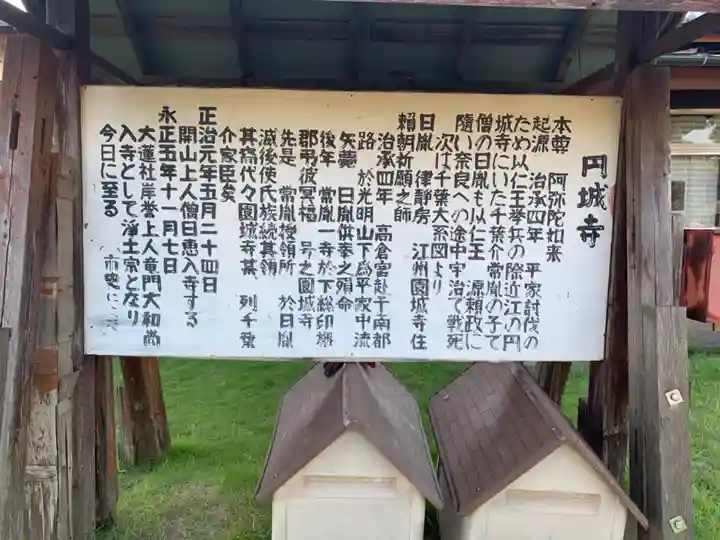 円城寺
本尊 阿弥陀如来
起源 治承四年 平家討伐の
ため以仁王挙兵の際近江の円
城寺にいた千葉介常胤の子で
僧の日胤も以仁王 源頼政に
随い奈良への途中宇治で戦死
次は千葉大系図より
日胤 律静房 江州園城寺住
頼朝祈願之師
治承四年 高倉宮赴于南都
路 於光明山下為平家中流
矢薨 日胤供奉之殞命
後年 常胤一寺於下総印旛
郡弔彼冥福 号之園城寺
先是 常胤授領所 於日胤
滅後使氏族続其領
其裔代々園城寺某 列千葉
介家臣矣
正治元年五月二十四日
開山上人僧日恵入寺する
永正五年十一月七日
大蓮社岸誉上人竜門大和尚
入寺として浄土宗となり
今日に至る